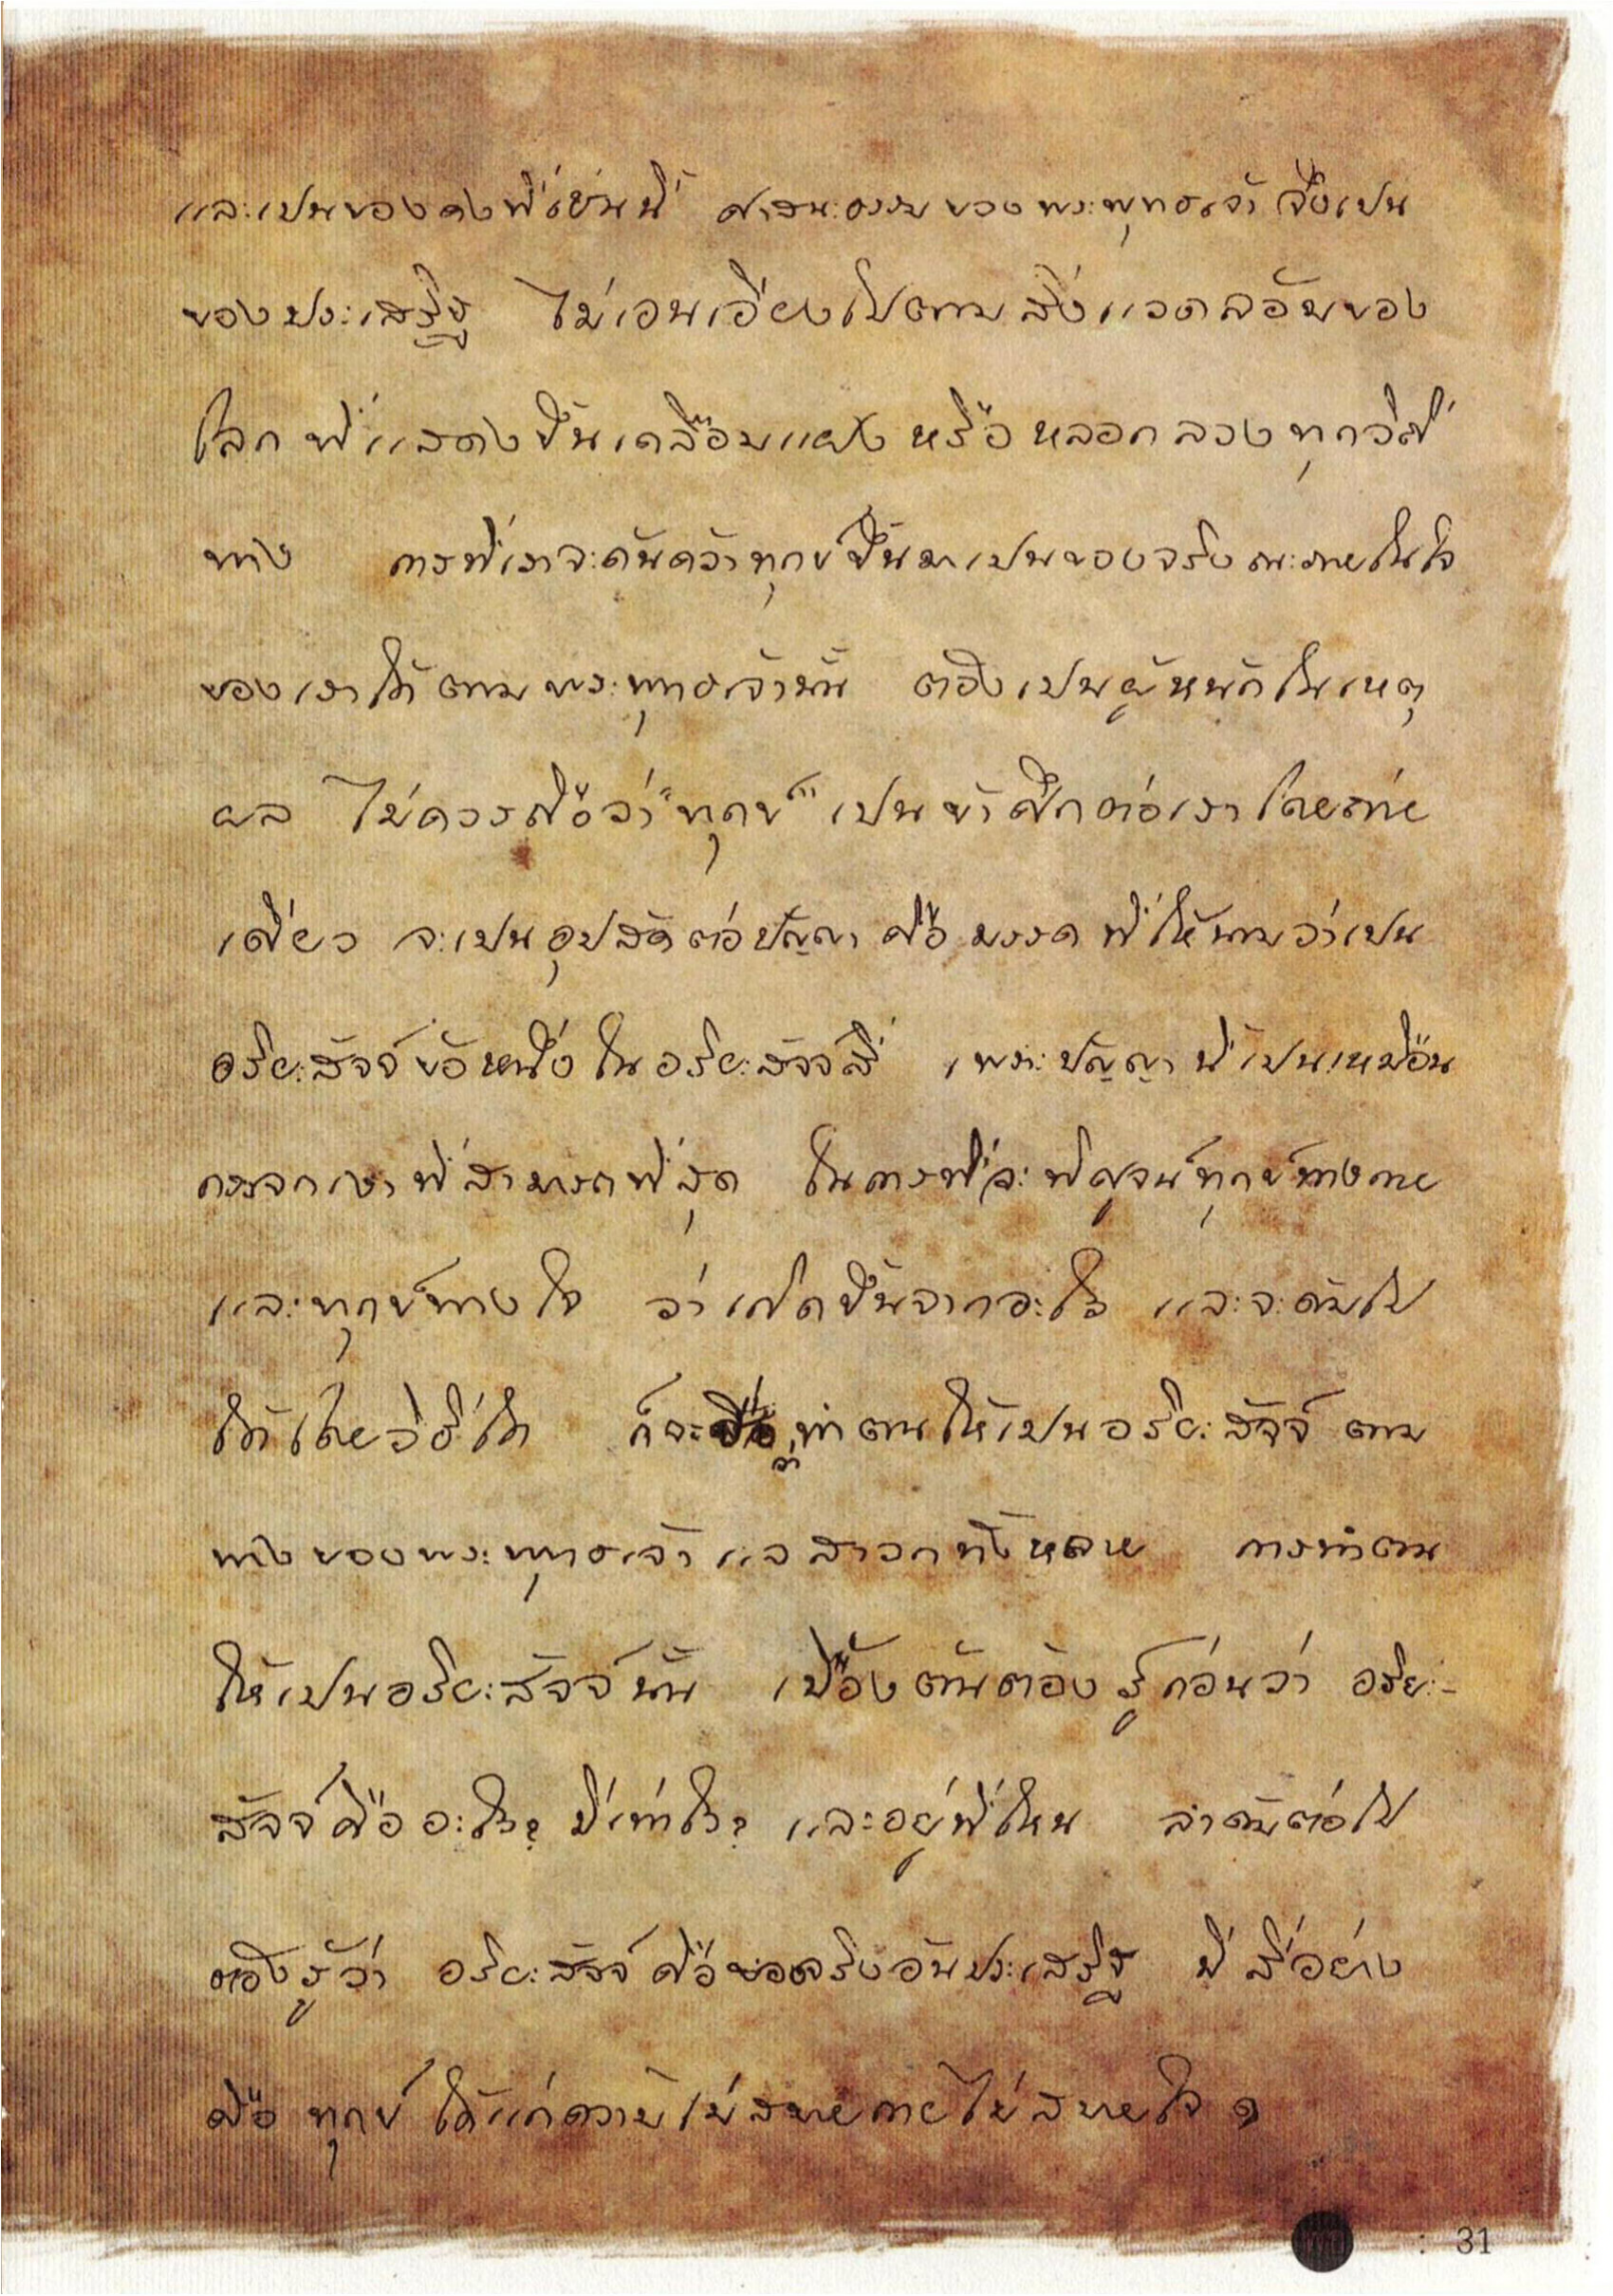 และเปนของคงที่เช่นนี้ ศาสนะธรรมของพระพุทธเจ้าจึงเปน
ของประเสริฐ ไม่เอนเอียงไปตามสิ่งแวดล้อมของ
โลกที่แสดงขึ้นเคลือบแฝงหรือหลอกลวงทุกวิถี
ทาง การที่เราจะค้นคว้าทุกข์ขึ้นมาเปนของจริง ณะภายในใจ
ของเราได้ตามพระพุทธเจ้านั้น ต้องเปนผู้หนักในเหตุ
ผล ไม่ควรถือว่า "ทุกข์" เปนข้าศึกต่อเราโดยถ่าย
เดียว จะเปนอุปสัคต่อปัญญา คือ มรรค ที่ให้นามว่าเปน
อริยะสัจจ์ข้อหนึ่งในอริยะสัจจ์สี่ เพราะปัญญานี้เปนเหมือน
กระจกเงาที่สามารถที่สุด ในการที่จะพิศูจน์ทุกข์ทางกาย
และทุกข์ทางใจ ว่าเกิดขึ้นจากอะไร และจะดับไป
ได้โดยวิธีใด ก็จะทำตนให้เปนอริยะสัจจ์ ตาม
ทางของพระพุทธเจ้าแลสาวกทั้งหลาย การทำตน
ให้เปนอริยะสัจจ์นั้น เบื้องต้นต้องรู้ก่อนว่า อริยะ-
สัจจ์คืออะไร? มีเท่าไร? และอยู่ที่ไหน ลำดับต่อไป
ต้องรู้ว่า อริยะสัจจ์คือของจริงอันประเสริฐ มีสี่อย่าง
คือ ทุกข์ ได้แก่ความไม่สบายกายไม่สบายใจ ๑
: 31